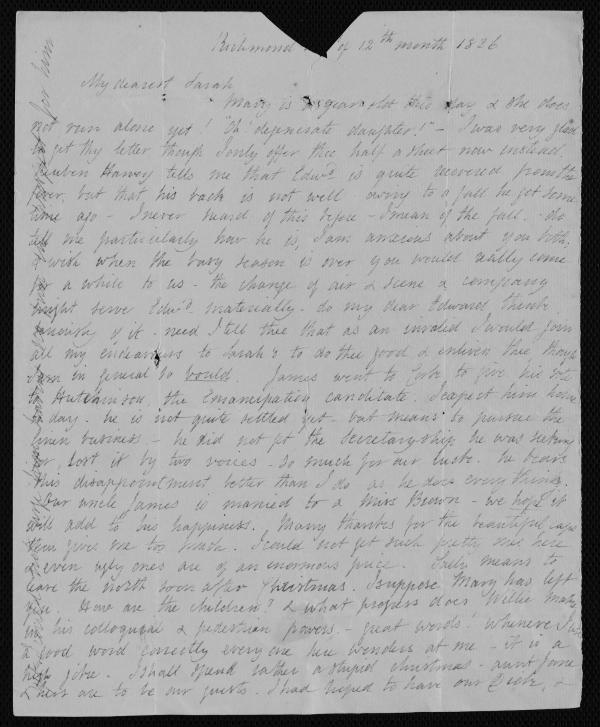 Richmond of 12th month 1826
My dearest Sarah
Mary is a year old this day & she does
not run alone yet! "Oh! degenerate daughter!" - I was very glad
to get thy letter though I only offer thee half a sheet now instead.
Reuben Harvey tells me that Edwd. is quite recovered from the
fever, but that his back is not well - owing to a fall he got some
time ago - I never heard of this before - I mean of the fall - do
tell me particularly how he is, I am anxious about you both,
& wish when the busy season is over you would really come
for a while to us - the change of air & scene & company
might serve Edwd. materially - do my dear Edward think
seriously of it - need I tell thee that as an invalid I would join
all my endeavours to Sarah's to do thee good & enliven thee, though
I am in general so would. James went to Cork to give his vote
to Hutchinson, the Emancipating candidate. I expect him home
to day. he is not quite settled yet - but means to pursue the
business - he did not get the Secretaryship he was seeking
for, lost it by two voices - so much for our luck. he bears
this disappointment better than I do as he does everything.
Our uncle James is married to a Miss Brown - we hope it
will add to his happiness. Many thanks for the beautiful caps
thou gives me too much. I could not get such pretty ones here
& even ugly ones are of an enormous price. Sally means to
leave the north soon after Christmas. I suppose Mary has left
you. How are the children? & what progress does Willie make
in his colloquial & pedestrian powers. - great words! Whenever I use
a good word correctly every one here wonders at me - it is a
high joke. I shall spend rather a stupid christmas - aunt Jane
& hers are to be our guests. I had hoped to have our &
for him